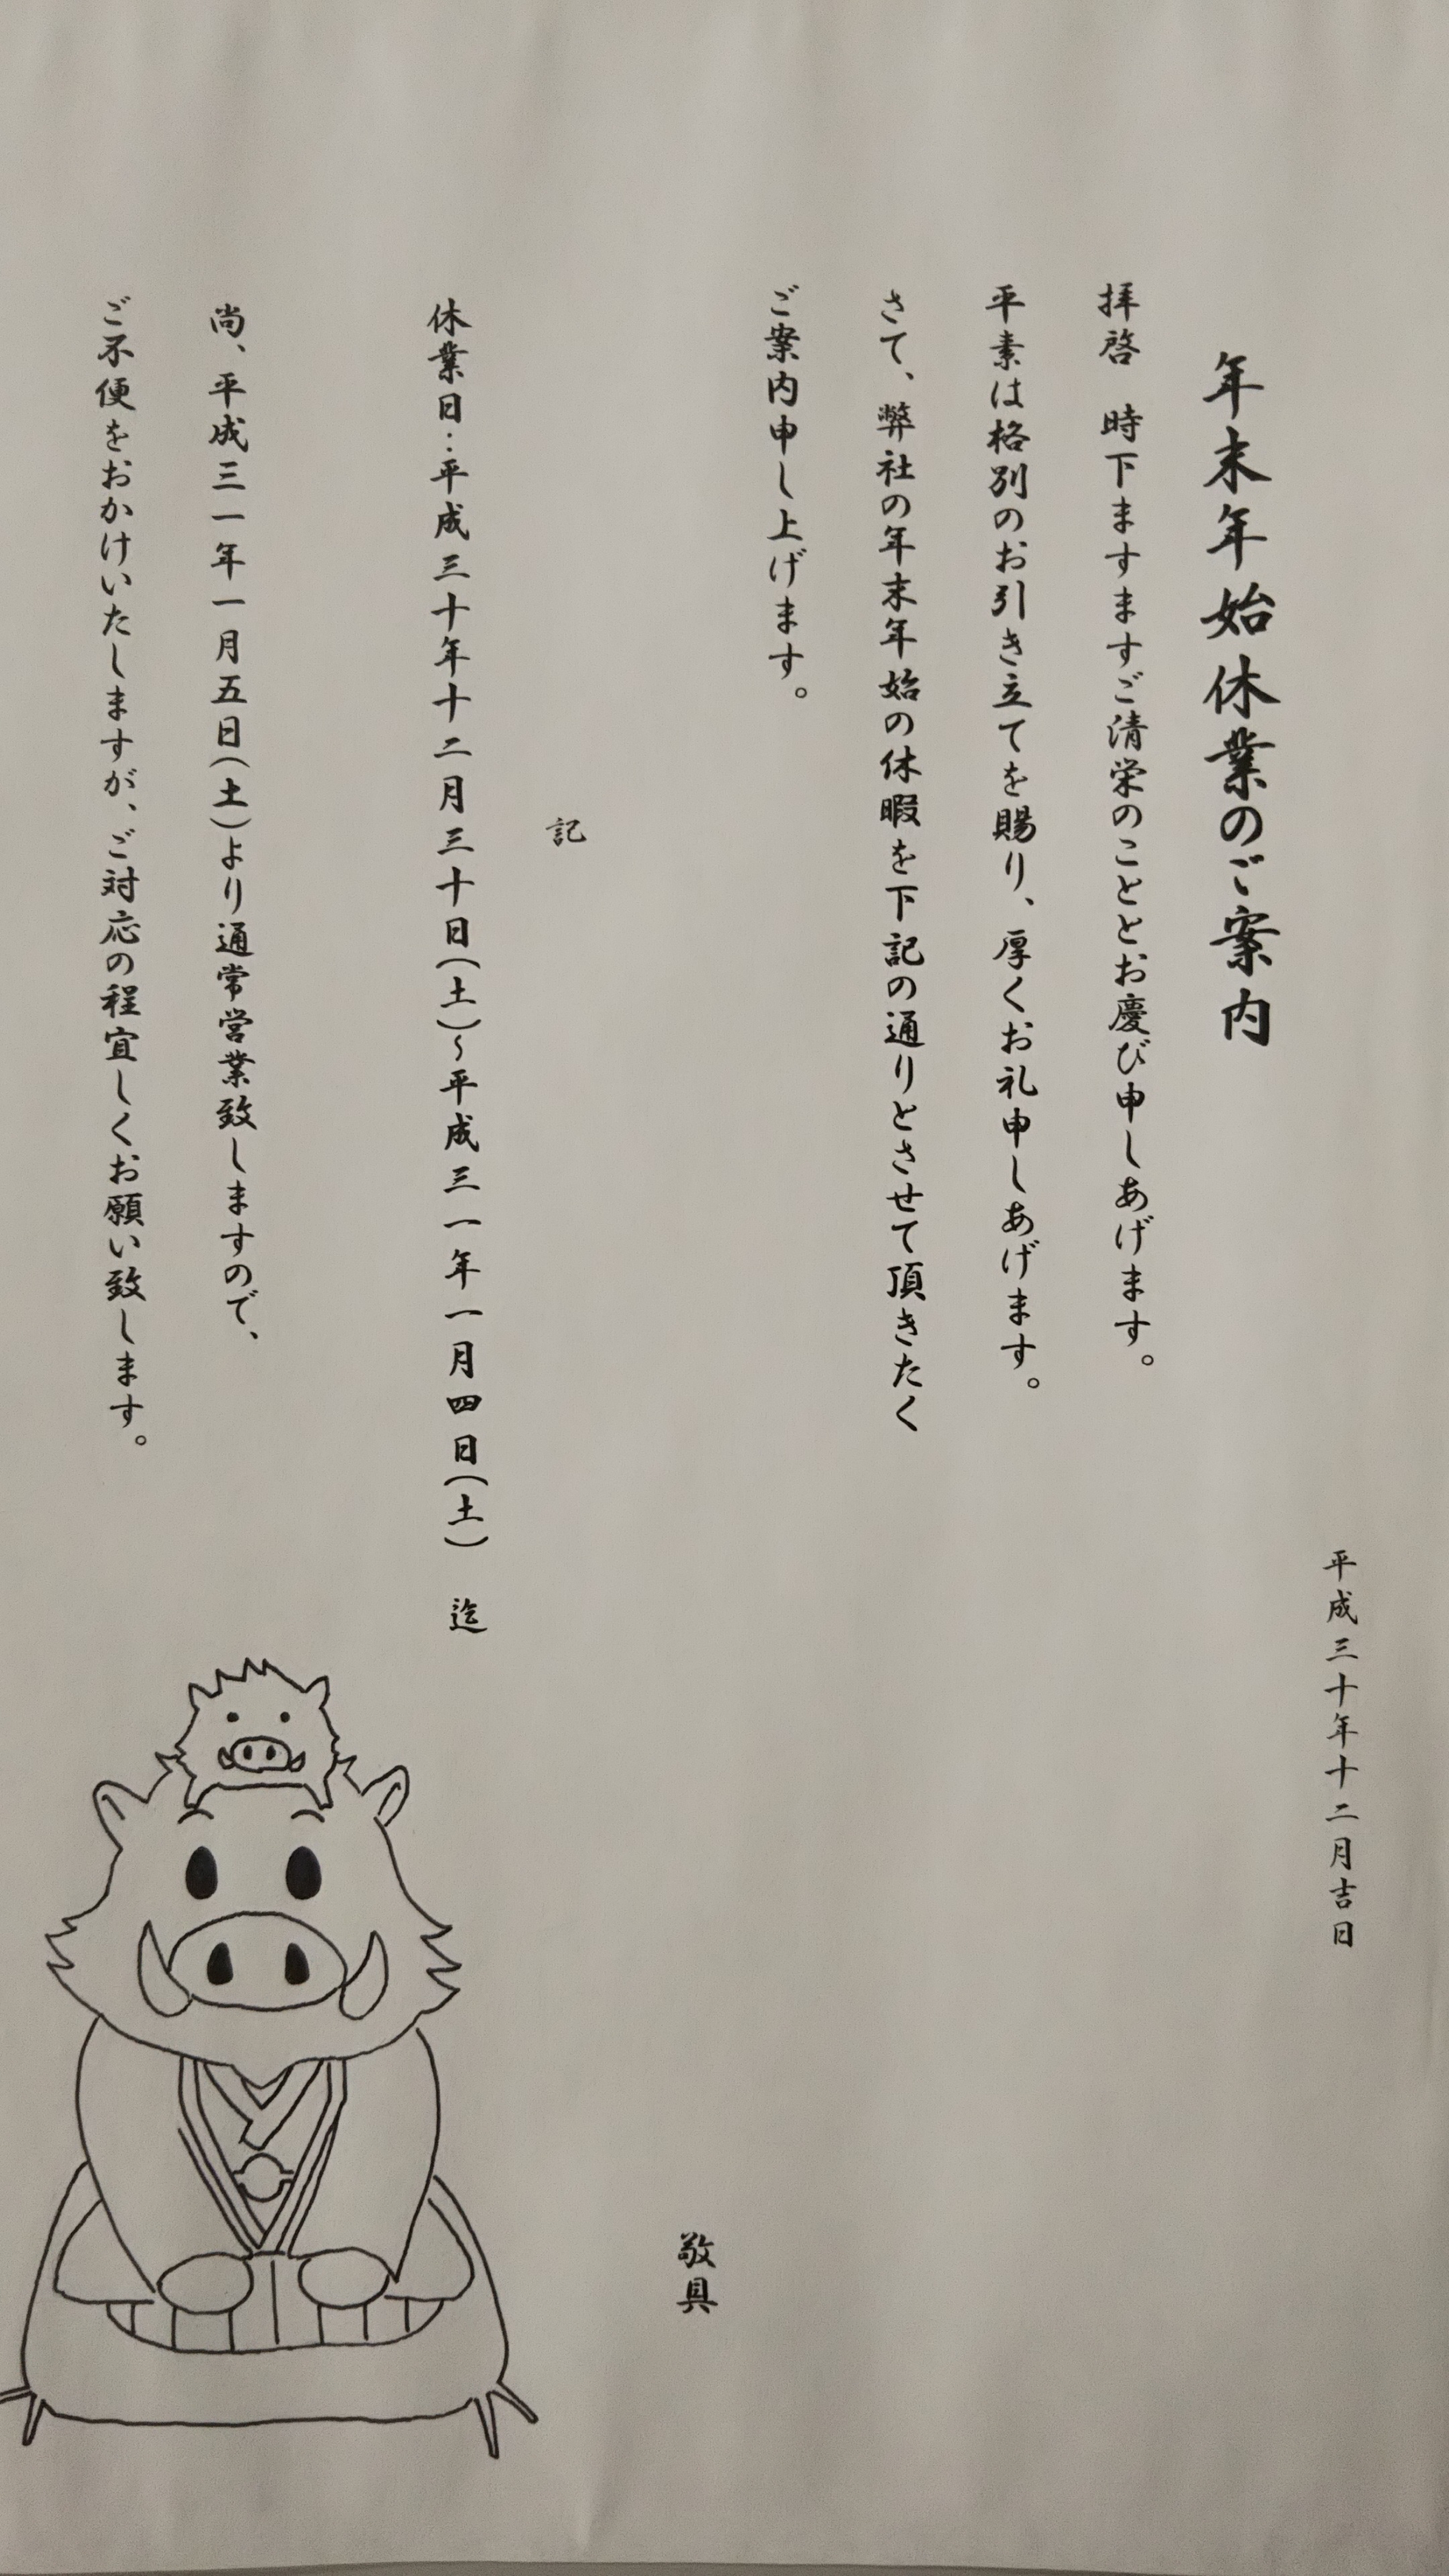 平成三十年十二月吉日
年末年始休業のご案内
拝啓　時下ますますご清栄のこととお慶び申しあげます。
平素は格別のお引き立てを賜り、厚くお礼申しあげます。
さて、弊社の年末年始の休暇を下記の通りとさせて頂きたく
ご案内申し上げます。
敬具
記
休業日：平成三十年十二月三十日（土）～平成三一年一月四日（土）　迄
尚、平成三一年一月五日（土）より通常営業致しますので、
ご不便をおかけいたしますが、ご対応の程宜しくお願い致します。